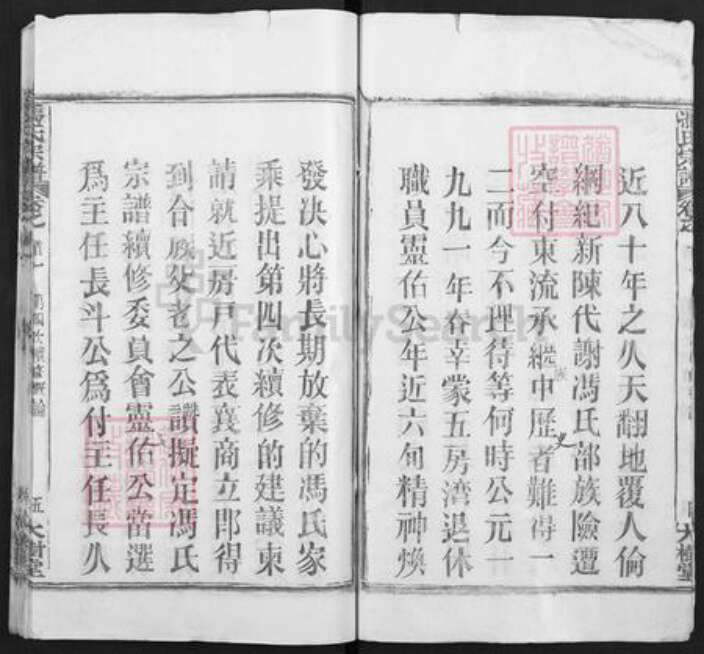 近八十年之久天翻地覆人倫
綱紀新陳代謝馮氏部族險遭
空付東流承繼中歷者難得一
族 史
二而今不理待等何時公元一
九九一年春幸蒙五房湾退休
職員靈佑公年近六旬精神煥
大樹堂
發决心將長期放棄的馮氏家
乘提出第四次續修的建議柬
請就近房戸代表襄商立即得
到合族父老之公讚擬定馮氏
宗譜續修委員會靈佑公當選
爲主任長斗公爲付主任長久
馮氏宗譜
五 大樹堂
FamilySearch